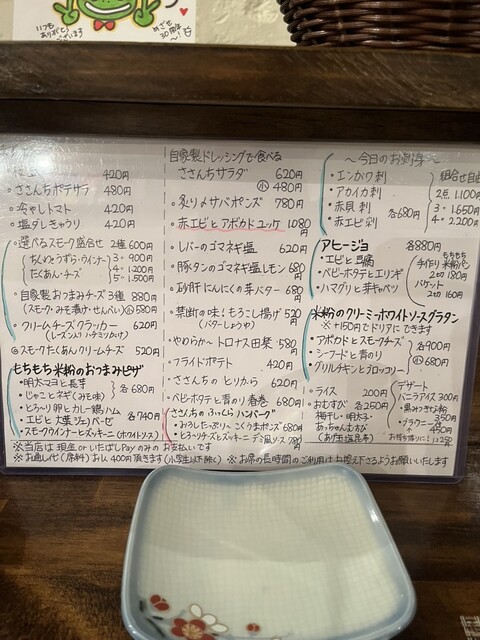 いつも
ありがとう
ございます
めざせ
30周年
〜!
420円
・ささんちポテサラ 480円
・冷やしトマト 420円
・塩ダレきゅうり 420円
・選べるスモーク盛合せ 2種 600円
ちくわ・うずら・ウインナー
たくあん・チーズ
3〃 900円
4〃 1200円
5〃 1500円
・自家製おつまみチーズ3種 880円
(スモーク・みそ漬け・せんべい) 小 580円
・クリームチーズクラッカー 620円
(レーズン入り ハチミツがけ)
スモークたくあんクリームチーズ 520円
もちもち米粉のおつまみピザ
・明太マヨと長芋
・じゃことネギ(みそ味)
各680円
・とろ〜り卵とカレー鶏ハム
・エビと大葉ジェノベーゼ
・スモークウインナーとズッキーニ(ホワイトソース)
各740円
自家製ドレッシングで食べる
ささんちサラダ 620円
小 480円
・炙り〆サバポンズ 780円
・赤エビとアボカドユッケ 1080円
・レバーのゴマネギ塩 620円
・豚タンのゴマネギ塩レモン 680円
・砂肝にんにくの芽バター 680円
・禁断の味!もろこし揚げ 520円
(バターしょうゆ)
・やわらか〜トロナス田楽 580円
・フライドポテト 420円
・ささんちのとりから 620円
・ベビーホタテと青のり春巻 680円
ささんちのふっくらハンバーグ
・おろしたっぷりきのこポンズ 680円
・とろ〜りチーズとズッキーニ デミ風ソース 780円
〜今日のお刺身〜
・エンガワ刺
・アカイカ刺
・赤貝刺
・赤エビ刺
各680円
組合せ自由
2点 1.100円
3〃 1.650円
4〃 2.200円
アヒージョ 各880円
・エビと豆腐
・ベビーホタテとエリンギ
・ハマグリと芽キャベツ
もちもち
手作り米粉パン
2切 180円
バゲット
2切 160円
米粉のクリーミーホワイトソースグラタン
※+150円でドリアにできます
・アボカドとスモークチーズ
・シーフードと青のり
・グリルチキンとブロッコリー
各900円
小 680円
・ライス 200円
・おむすび 各250円
梅干し・明太子・
あっちゃんおすび
(あげ玉塩昆布)
デザート
バニラアイス 300円
・黒みつきな粉 350円
・ブラウニー 450円
※当店は現金orいたばしPayのみのお支払いです
※お通し代(席料)お1人400円頂きます(小学生以下除く) ※お席の長時間のご利用はお控え下さるようお願いいたします